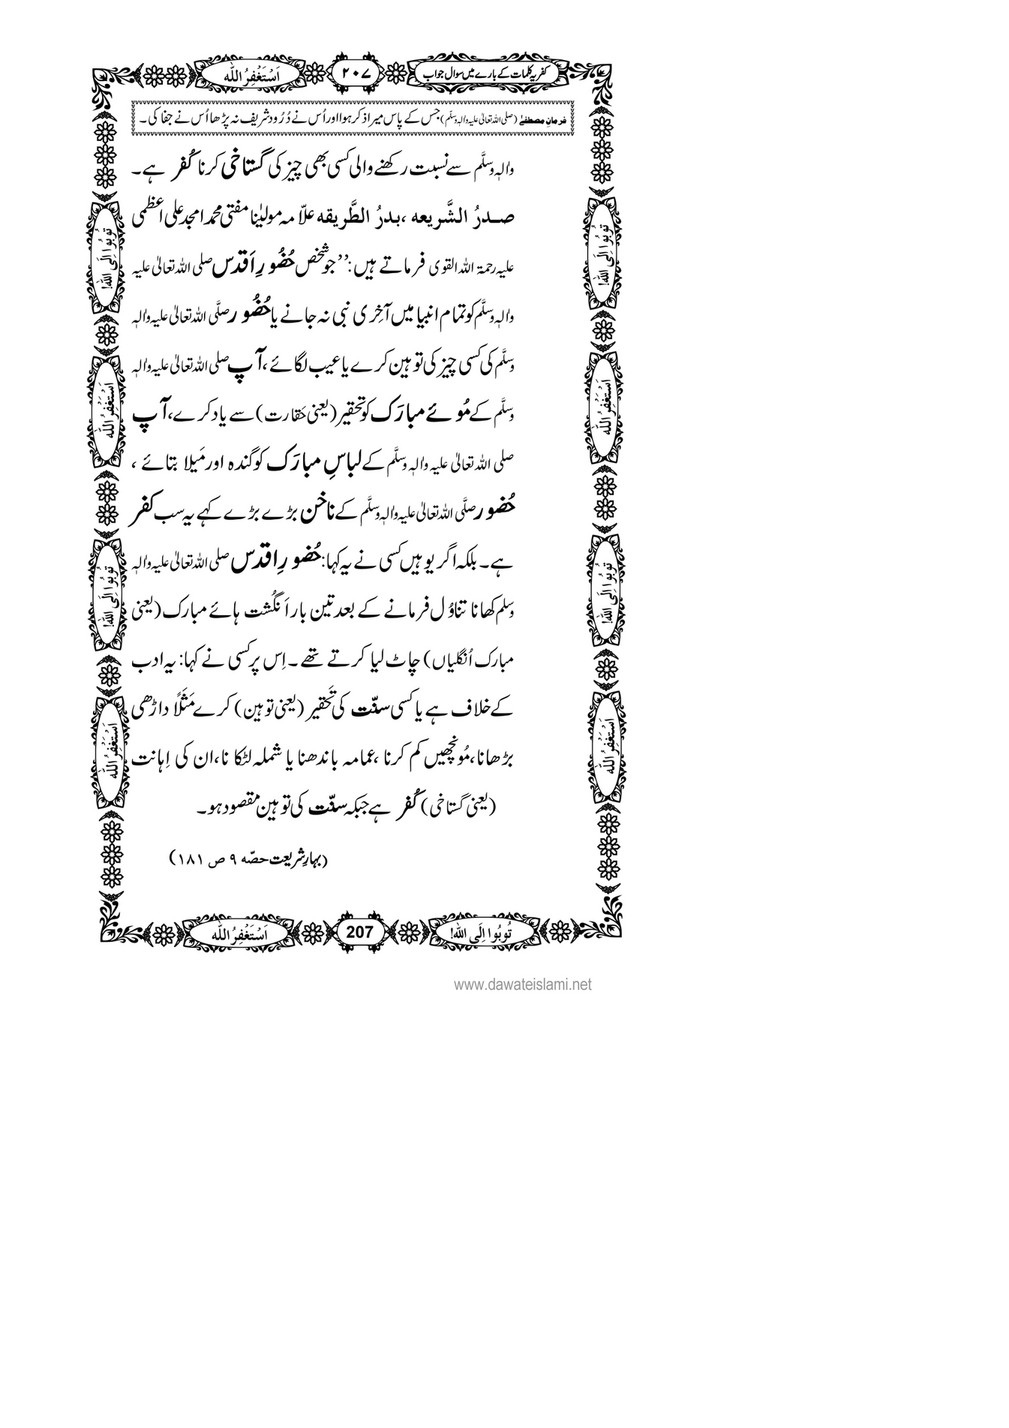 کفریہ کلمات کے بارے میں سوال جواب
۲۰۷
اَسْتَغْفِرُ اللّٰه
فرمانِ مصطفیٰ (صلی اللہ تعالیٰ علیہ واٰلہٖ وسلّم) جس کے پاس میرا ذکر ہوا اور اُس نے دُرُود شریف نہ پڑھا اُس نے جفا کی۔
واٰلہٖ وسلَّم سے نسبت رکھنے والی کسی بھی چیز کی گستاخی کرنا کُفر ہے۔
صدرُ الشَّریعہ، بدرُ الطَّریقہ علّامہ مولیٰنا مفتی محمد امجد علی اعظمی
علیہ رحمۃ اللہ القوی فرماتے ہیں: ’’جو شخص حُضُورِ اَقدس صلی اللہ تعالیٰ علیہ
واٰلہٖ وسلَّم کو تمام انبیا میں آخِری نبی نہ جانے یا حُضُور صلَّی اللہ تعالیٰ علیہ واٰلہٖ
وسلَّم کی کسی چیز کی توہین کرے یا عیب لگائے، آپ صلی اللہ تعالیٰ علیہ واٰلہٖ
وسلَّم کے مُوئے مبارَک کو تحقیر (یعنی حَقارت) سے یاد کرے، آپ
صلی اللہ تعالیٰ علیہ واٰلہٖ وسلَّم کے لباسِ مبارَک کو گندہ اور مَیلا بتائے ،
حُضور صلَّی اللہ تعالیٰ علیہ واٰلہٖ وسلَّم کے ناخُن بڑے بڑے کہے یہ سب کفر
ہے۔ بلکہ اگر یوہیں کسی نے یہ کہا: حُضورِ اقدس صلی اللہ تعالیٰ علیہ واٰلہٖ
وسلم کھانا تناوُل فرمانے کے بعد تین بار اَنگُشت ہائے مبارک (یعنی
مبارک اُنگلیاں) چاٹ لیا کرتے تھے۔ اِس پر کسی نے کہا: یہ ادب
کے خلاف ہے یا کسی سنّت کی تَحقیر (یعنی توہین) کرے مَثَلًا داڑھی
بڑھانا، مُونچھیں کم کرنا، عمامہ باندھنا یا شملہ لٹکانا، ان کی اِہانت
(یعنی گستاخی) کُفر ہے جبکہ سنّت کی توہین مقصود ہو۔
(بہارِ شریعت حصّہ ۹ ص ۱۸۱)
تُوبُوا اِلَی اللّٰه!
اَسْتَغْفِرُ اللّٰه
تُوبُوا اِلَی اللّٰه!
اَسْتَغْفِرُ اللّٰه
تُوبُوا اِلَی اللّٰه!
اَسْتَغْفِرُ اللّٰه
تُوبُوا اِلَی اللّٰه!
اَسْتَغْفِرُ اللّٰه
تُوبُوا اِلَی اللّٰه!
207
اَسْتَغْفِرُ اللّٰه
www.dawateislami.net